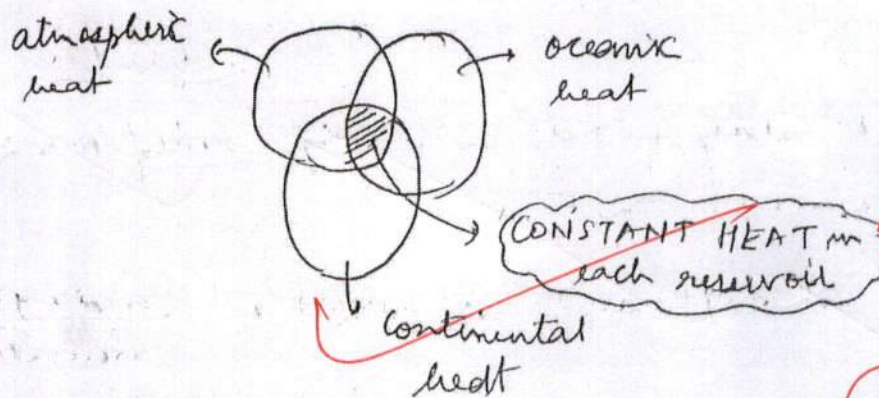 atmospheric
heat
oceanic
heat
CONSTANT HEAT in
each reservoir
Continental
heat